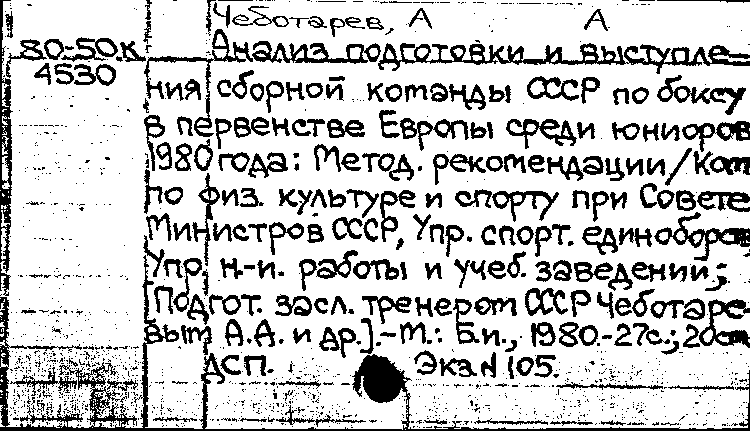 Чеботарев, А А
80-50.К Анализ подготовки и выступле-
4530
ния сборной команды СССР по боксу
в первенстве Европы среди юниоров
1980 года: Метод. рекомендации/Ком
по физ. культуре и спорту при Совете
Министров СССР, Упр. спорт. единоборств
Упр. н.-и. работы и учеб. заведений;
[Подгот. засл. тренером СССР Чеботаре-
вым А.А. и др.].-М.: Б.и., 1980.-27с.; 20см
ДСП. Экз.N 105.